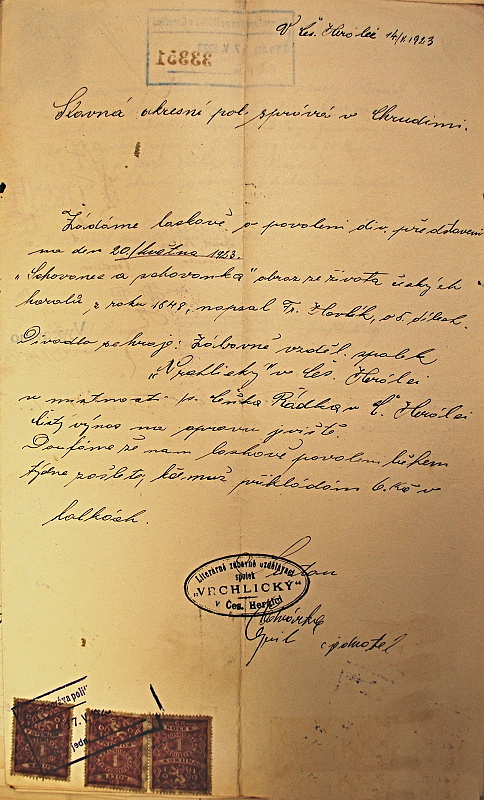 V Čes. Heralci 14/V. 1923
33351
Slavná okresní pol. správa v Chrudimi.
Žádáme laskavě o povolení div. představení
na den 20/května 1923.
„Schovanec a schovanka" obraz ze života českých
horalů, z roku 1848, napsal Fr. Havlík, o 5. dílech.
Divadlo sehraje: Zábavně vzděl. spolek
„Vrchlický" v Čes. Heralci
v místnosti p. Čeňka Rádka v Č. Heralci
čistý výnos na opravu jeviště.
Doufáme že nám laskavě povolení během
týdne zašlete, k čemuž přikládám 6. Kč v
kolkách.
Literárně zábavně vzdělávací
spolek
„VRCHLICKÝ"
v Čes. Heralci
jednatel